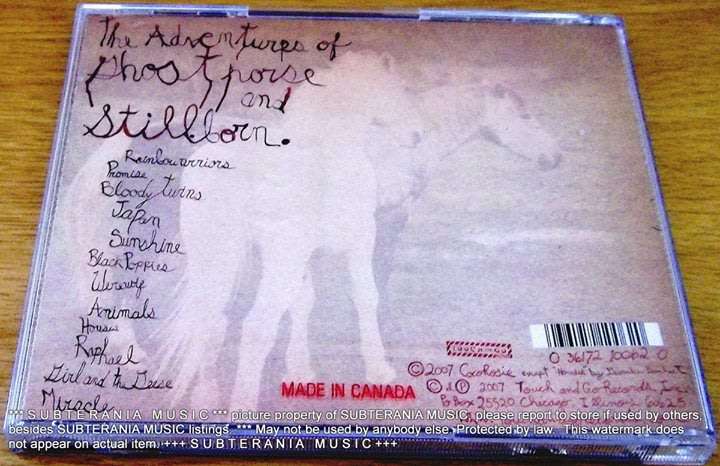 The Adventures of
Ghosthorse
and
Stillborn.
Rainbowarriors
Promise
Bloody Twins
Japan
Sunshine
Black Poppies
Werewolf
Animals
Houses
Raphael
Girl and the Geese
Miracle
TOUCH AND GO
0 36172 10062 0
© 2007 CocoRosie except "Houses" by
MADE IN CANADA
© ℗ 2007 Touch and Go Records, Inc.
Po Box 25520 Chicago, Illinois
*** SUBTERANIA MUSIC *** picture property of SUBTERANIA MUSIC, please report to store if used by others
besides SUBTERANIA MUSIC listings. *** May not be used by anybody else. Protected by law. This watermark does
not appear on actual item. +++ SUBTERANIA MUSIC +++